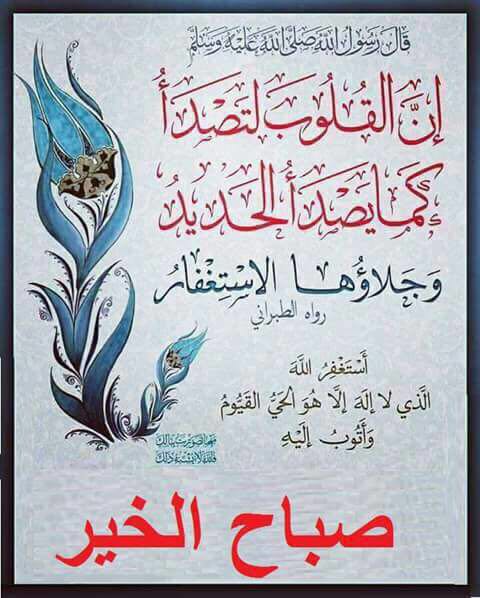 قَالَ رَسُولُ اللهِ صَلَّى اللهُ عَلَيْهِ وَسَلَّمَ
إِنَّ القُلُوبَ لَتَصْدَأُ
كَمَا يَصْدَأُ الحَدِيدُ
وَجَلَاؤُهَا الِاسْتِغْفَارُ
رواه الطبراني
أَسْتَغْفِرُ اللهَ
الَّذِي لَا إِلَهَ إِلَّا هُوَ الحَيُّ القَيُّومُ
وَأَتُوبُ إِلَيْهِ
مهما تصورت ببالك
فالله لا يشبه ذلك
صباح الخير